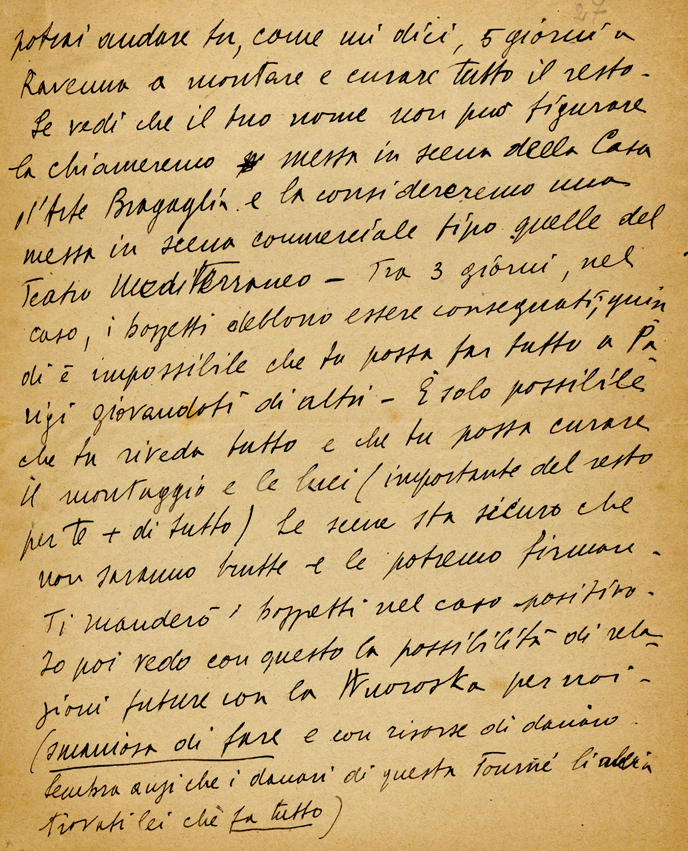 27
potrai andare tu, come mi dici, 5 giorni a
Ravenna a montare e curare tutto il resto -
Se vedi che il tuo nome non può figurare
la chiameremo messa in scena della Casa
d'Arte Bragaglia e la considereremo una
messa in scena commerciale tipo quelle del
Teatro Mediterraneo - Tra 3 giorni, nel
caso, i bozzetti debbono essere consegnati, quin
di è impossibile che tu possa far tutto a Pa-
rigi giovandoti di altri - È solo possibile
che tu riveda tutto e che tu possa curare
il montaggio e le luci (importante del resto
per te + di tutto) Le scene sta sicuro che
non saranno brutte e le potremo firmare -
Ti manderò i bozzetti nel caso positivo -
Io poi vedo con questo la possibilità di rela-
zioni future con la per noi -
(smaniosa di fare e con risorse di danaro -
Sembra anzi che i danari di questa Tourné li abbia
trovati lei che fa tutto)